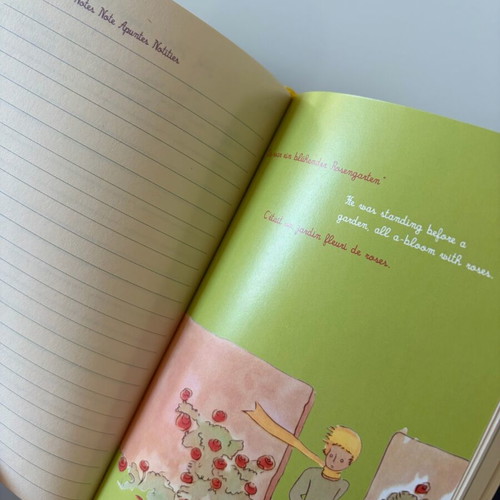 Notes Note Apuntes Notities
ein blühender Rosengarten"
He was standing before a
garden, all a-bloom with roses.
C'était un jardin fleuri de roses.